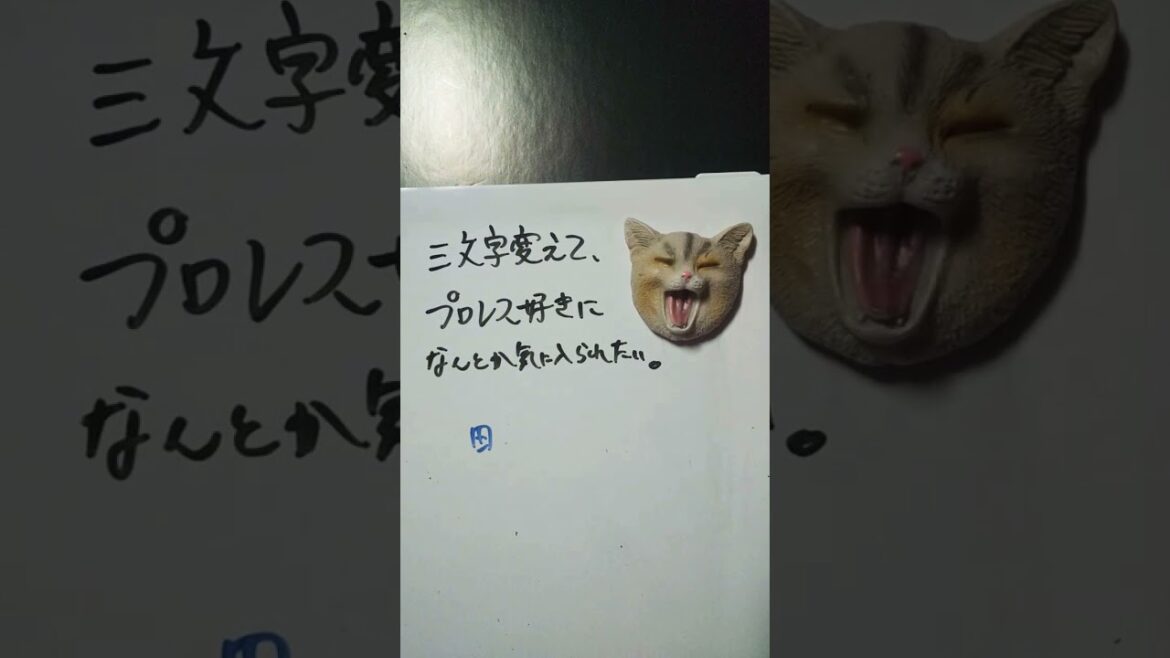 三文字変えて、
プロレス好きに
なんとか気に入られたい。
田